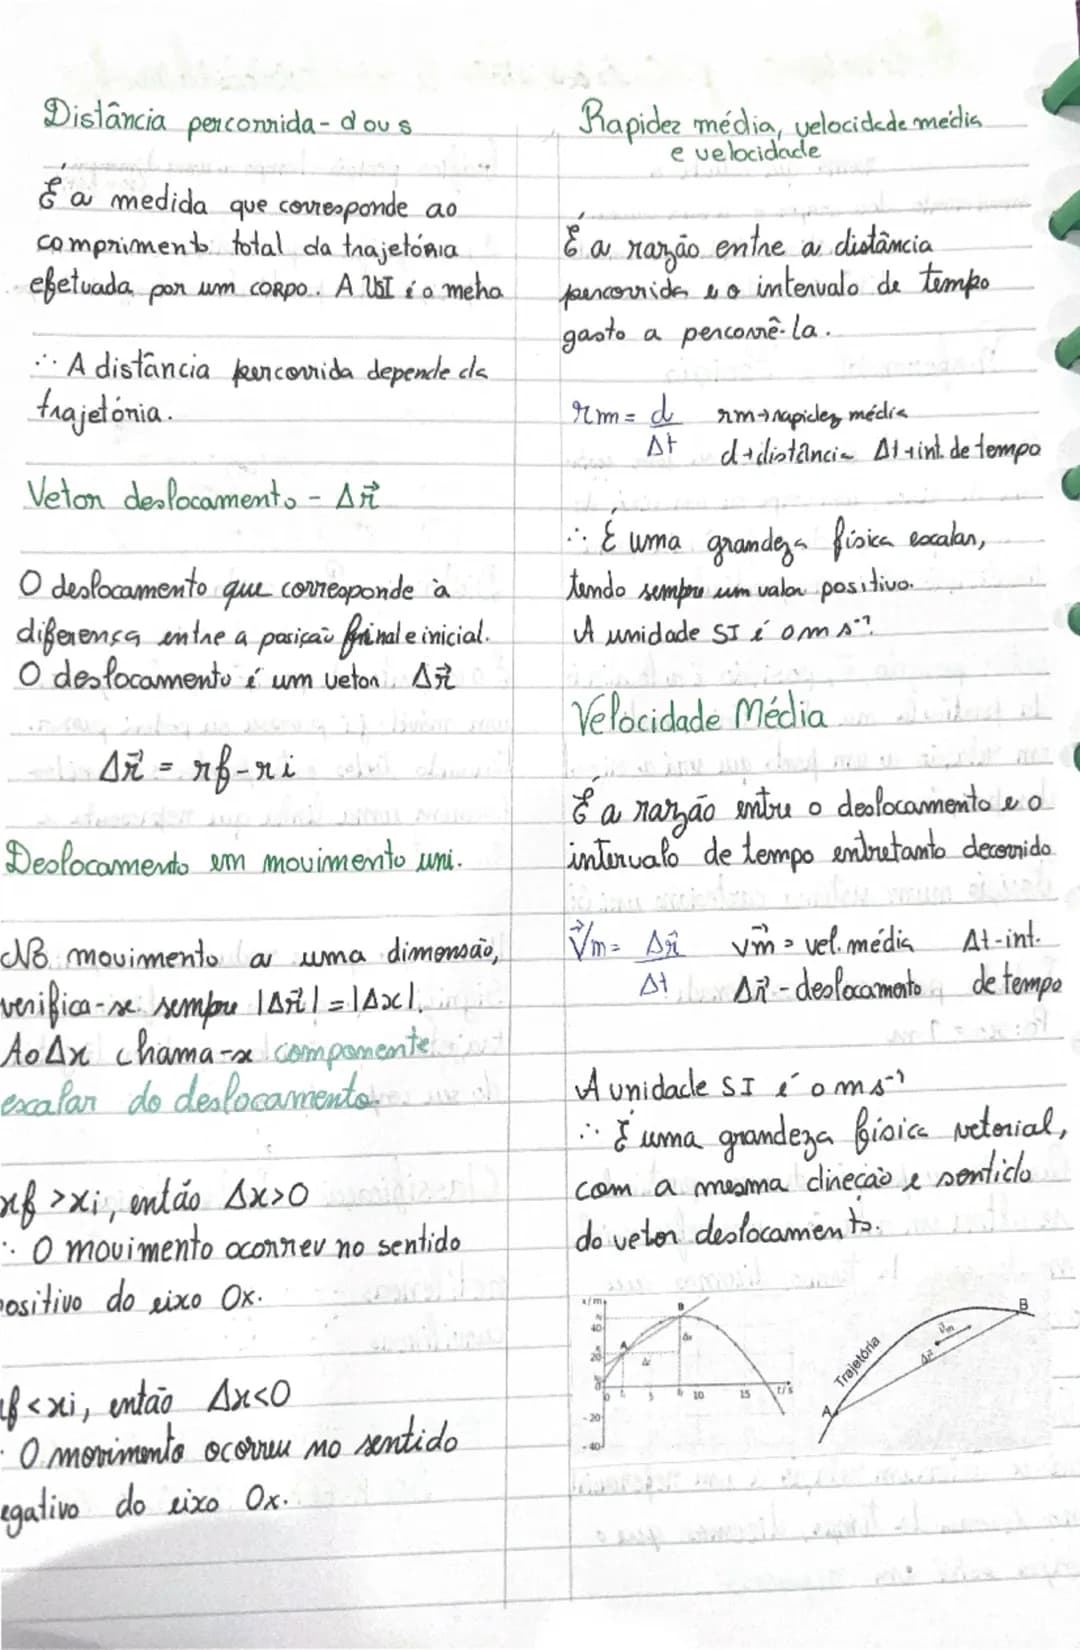 Distância percorrida - d ou s
É a medida que corresponde ao
comprimento total da trajetória
efetuada por um corpo. A USI é o metro
∴ A distância percorrida depende da
trajetória.
Vetor deslocamento - Δr⃗
O deslocamento que corresponde à
diferença entre a posição final e inicial.
O deslocamento é um vetor Δr⃗
Δr⃗ = rf - ri
Deslocamento em movimento uni.
No movimento a uma dimensão,
verifica-se sempre |Δr⃗| = |Δx|.
Ao Δx chama-se componente
escalar do deslocamento.
xf > xi, então Δx>0
∴ O movimento ocorreu no sentido
positivo do eixo Ox.
xf < xi, então Δx<0
∴ O movimento ocorreu no sentido
negativo do eixo Ox.
Rapidez média, velocidade média
e velocidade
É a razão entre a distância
percorrida e o intervalo de tempo
gasto a percorrê-la.
rm = d/Δt rm→rapidez média
d→distância Δt→int. de tempo
∴ É uma grandeza física escalar,
tendo sempre um valor positivo.
A unidade SI é o m s⁻¹
Velocidade Média
É a razão entre o deslocamento e o
intervalo de tempo entretanto decorrido
v⃗m = Δr⃗/Δt v⃗m = vel. média Δt - int.
Δr⃗ - deslocamento de tempo
A unidade SI é o m s⁻¹
∴ É uma grandeza física vetorial,
com a mesma direção e sentido
do vetor deslocamento.
x/m
40
20
0
-20
-40
0 5 10 15 t/s
A B Δx Δt
Trajetória
A B Δr⃗ v⃗m